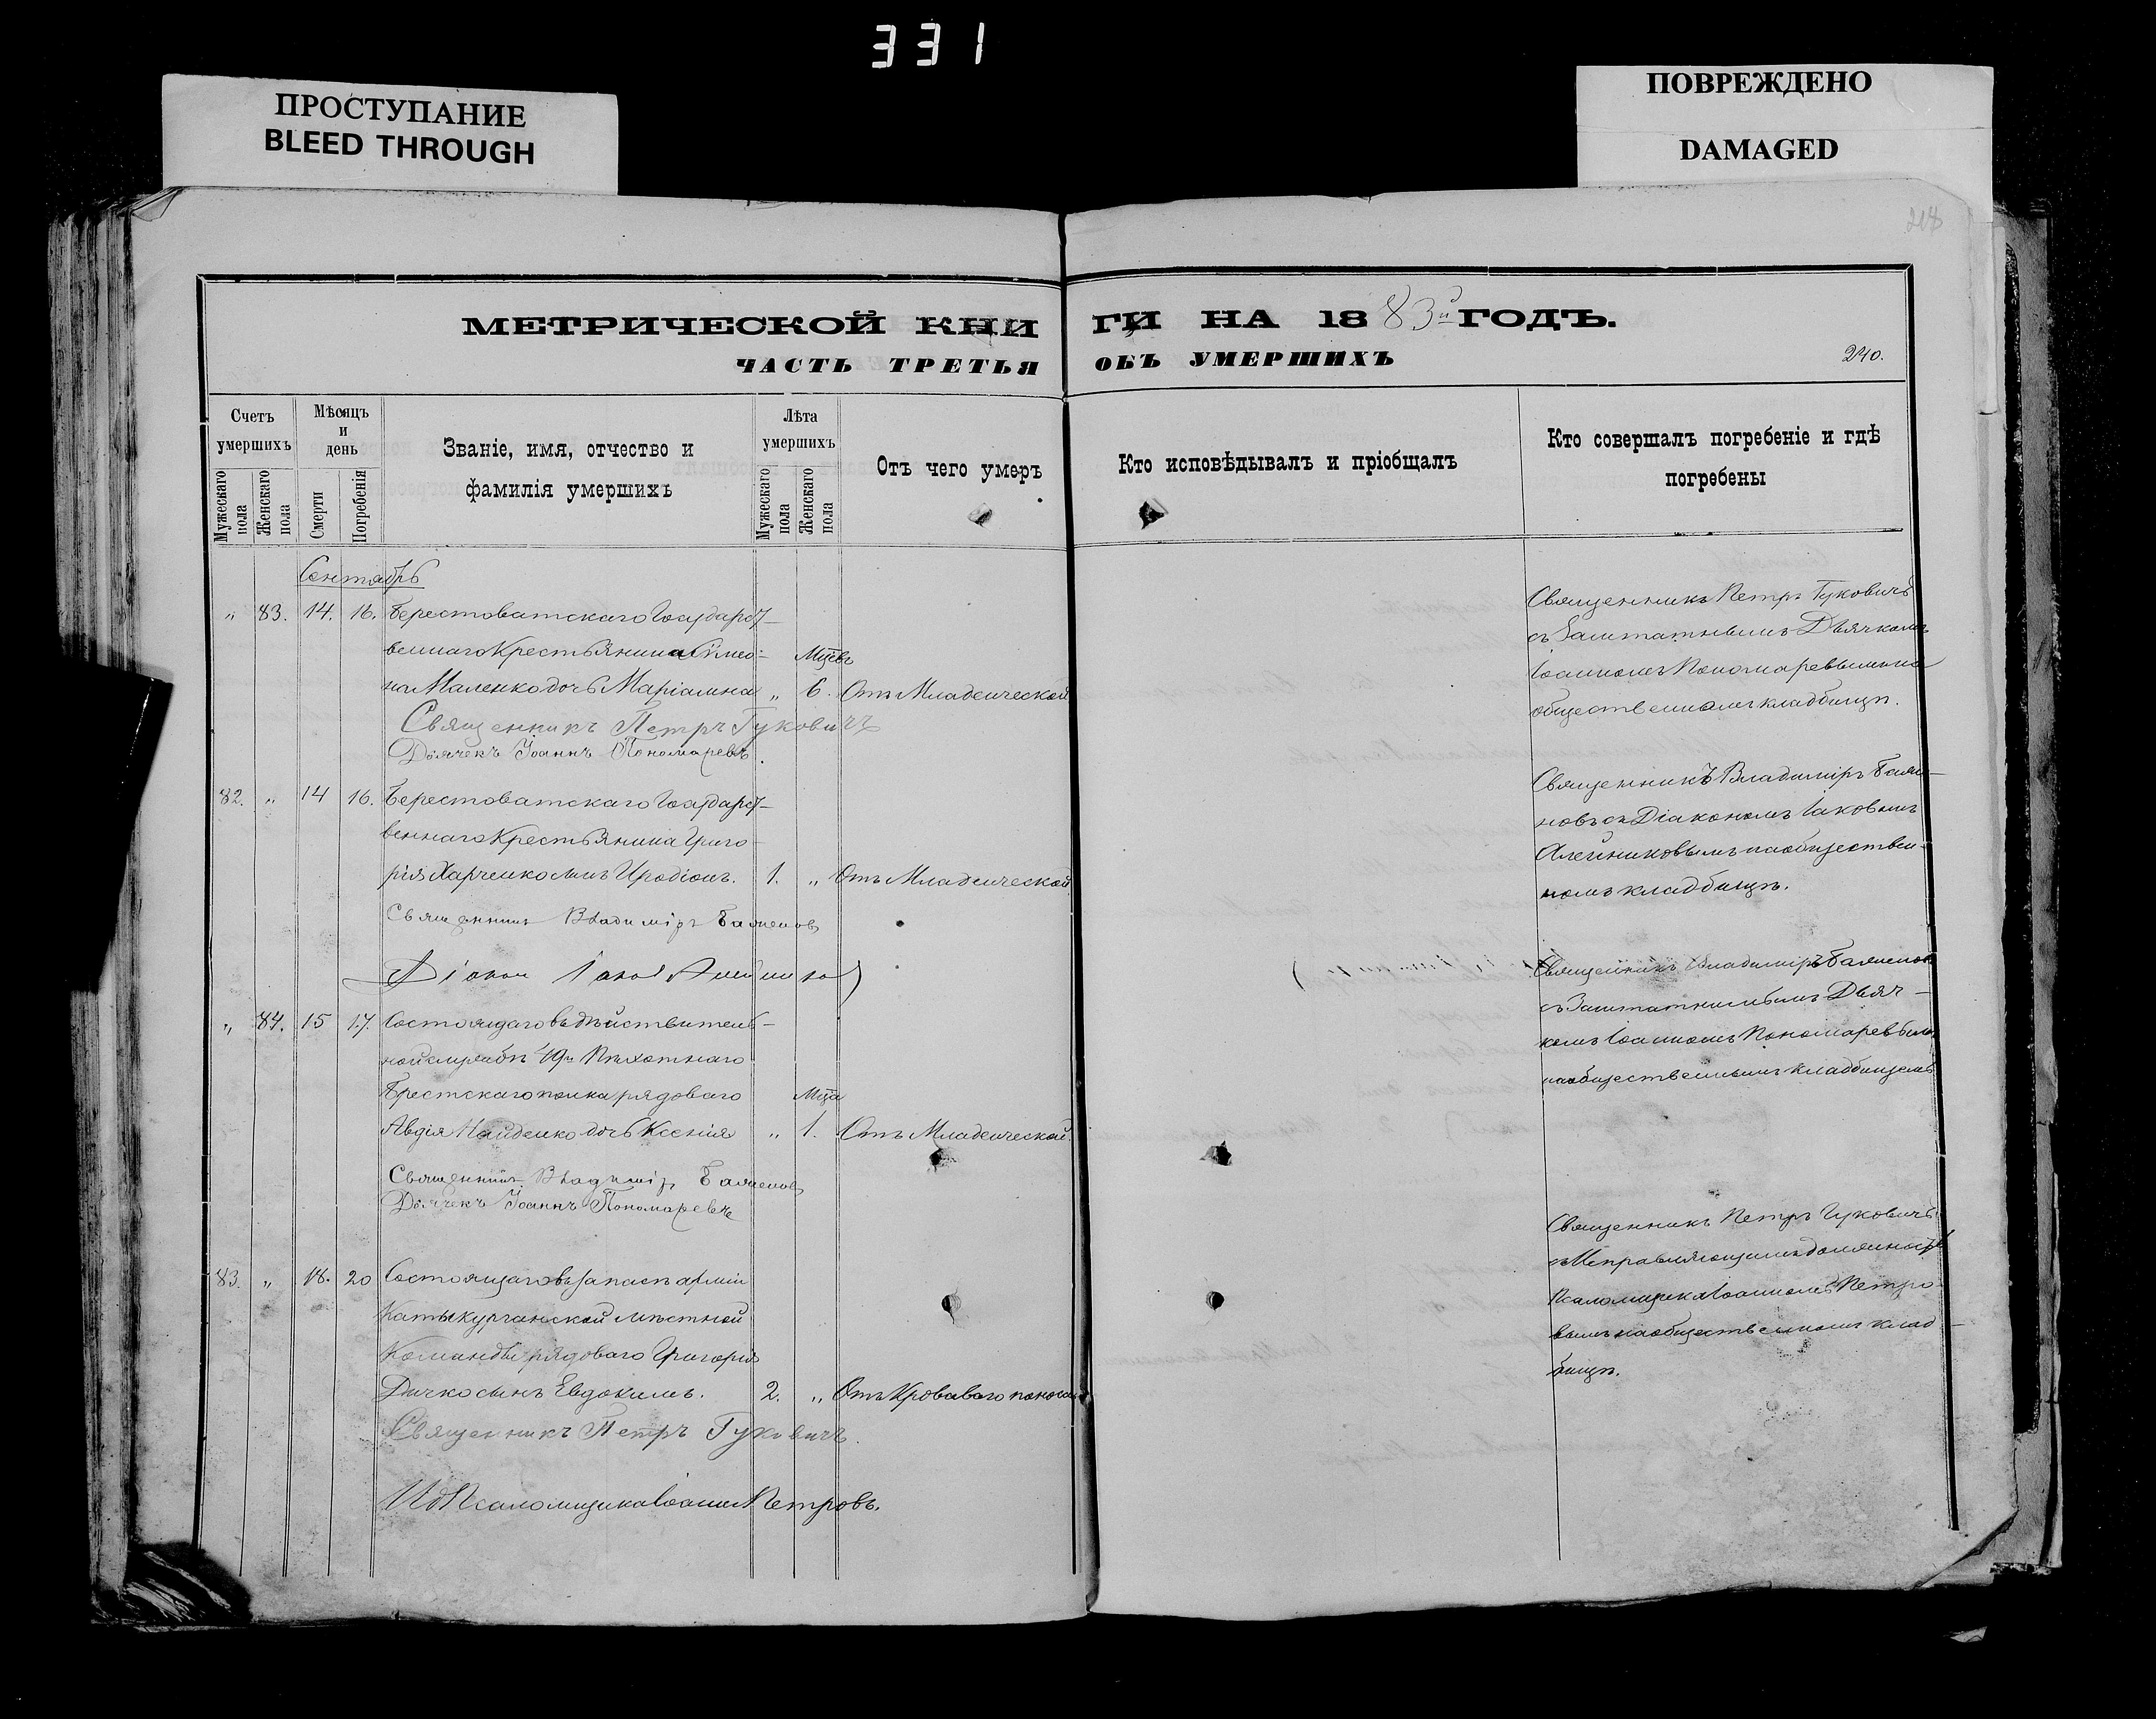 331
ПРОСТУПАНИЕ
BLEED THROUGH
ПОВРЕЖДЕНО
DAMAGED
218
МЕТРИЧЕСКОЙ КНИ
ГИ НА 1883й ГОДЪ.
ЧАСТЬ ТРЕТЬЯ
ОБЪ УМЕРШИХЪ
240.
Счетъ умершихъ
Мужескаго пола
Женскаго пола
Мѣсяцъ и день
Смерти
Погребенія
Званіе, имя, отчество и
фамилія умершихъ
Лѣта умершихъ
Мужескаго пола
Женскаго пола
Отъ чего умеръ
Кто исповѣдывалъ и пріобщалъ
Кто совершалъ погребеніе и гдѣ
погребены
Сентябрь
„ 83. 14. 16. Берестоватскаго Государст-
веннаго Крестьянина Симео-
Мцевъ
на Маленко дочь Маріамна „ 6. Отъ Младенческой
Священникъ Петръ Гуковичъ
Дьячекъ Іоаннъ Пономаревъ.
Священникъ Петръ Гуковичъ
съ Заштатнымъ Дьячкомъ
Іоанномъ Пономаревымъ на
общественномъ кладбищѣ.
82. „ 14 16. Берестоватскаго Государст-
веннаго Крестьянина Григо-
рія Харченко сынъ Иродіонъ. 1. „ Отъ Младенческой
Священникъ Владиміръ
Діаконъ Іаковъ
Священникъ Владиміръ
новъ съ Діакономъ Іаковомъ
Алейниковымъ на обществен-
номъ кладбищѣ.
„ 84. 15 17. Состоящаго въ дѣйствитель-
ной службѣ 49го Пѣхотнаго
Брестскаго полка рядоваго
Мца
Авдія Найденко дочь Ксенія „ 1. Отъ Младенческой.
Священникъ Владиміръ
Дьячекъ Іоаннъ Пономаревъ
Священникъ Владиміръ
съ Заштатнымъ Дьяч-
комъ Іоанномъ Пономаревымъ
на общественнымъ кладбищемъ
83. „ 18. 20 Состоящаго въ запасѣ арміи
Катыкурганской мѣстной
Команды рядоваго Григорія
Дичко сынъ Евдокимъ. 2. „ Отъ Кроваваго поноса
Священникъ Петръ Гуковичъ.
ИД Псаломщика Іоаннъ Петровъ.
Священникъ Петръ Гуковичъ
съ Исправляющимъ должность
Псаломщика Іоанномъ Петро-
вымъ на общественномъ клад-
бищѣ.